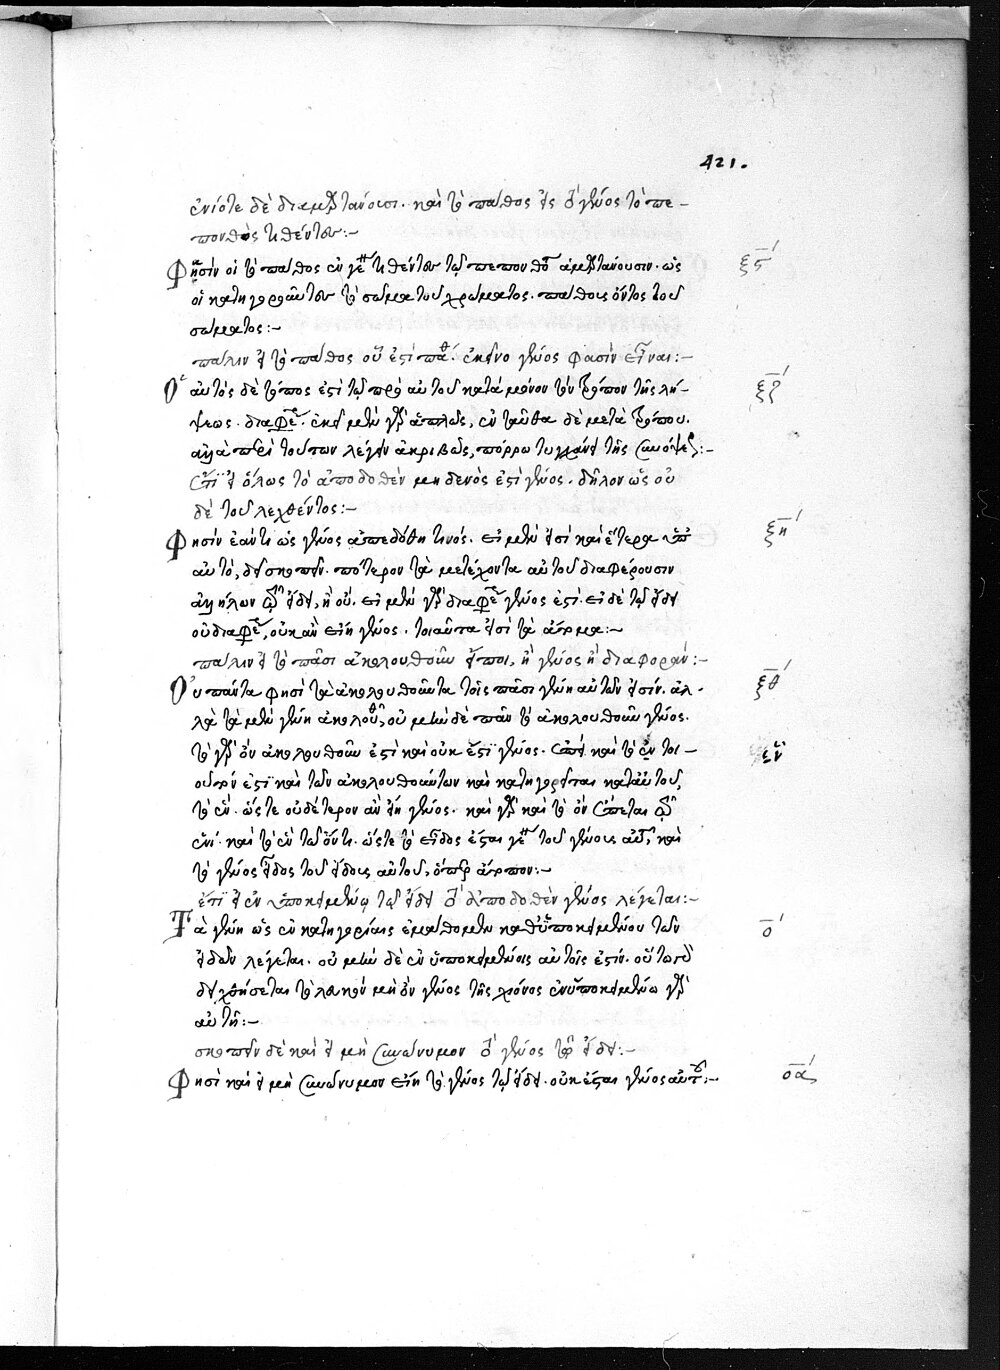 421.
ἐνίοτε δὲ διαμαρτάνουσι καὶ τὸ πάθος εἰς γένος τὸ πε-
πονθὸς τιθέντες:-
Φησὶν οἱ τὸ πάθος ἐν γένει τιθέντες τῷ πεπονθότι ἁμαρτάνουσιν. ὡς ξϛ
οἱ κατηγοροῦντες τοῦ σώματος χρώματος. πάθους ὄντος τοῦ
σώματος:-
πάλιν εἰ τὸ πάθος οὗ ἐστὶ πάθος. ἐκεῖνο γένος φασὶν εἶναι:-
Ὁ αὐτὸς δὲ τόπος ἐστὶ τῷ πρὸ αὐτοῦ κατὰ μόνον τὸν τρόπον τῆς λή- ξζ
ψεως διαφέρει. ἐκεῖ μὲν γὰρ ἁπλῶς, ἐνταῦθα δὲ μετὰ τρόπου.
ἀλλὰ περὶ τούτων λέγειν ἀκριβῶς, πόρρω τυγχάνει τῆς συνόψεως:-
ἔτι εἰ ὅλως τὸ ἀποδοθὲν μηδενός ἐστι γένος. δῆλον ὡς οὐ
δὲ τοῦ λεχθέντος:-
Φησὶν ἐάν τι ὡς γένος ἀπεδόθη τινός. εἰ μὲν εἰσὶ καὶ ἕτερα ὑπ' ξη
αὐτό, δεῖ σκοπεῖν. πότερον τὰ μετέχοντα αὐτοῦ διαφέρουσιν
ἀλλήλων τῷ εἴδει, ἢ οὔ. εἰ μὲν γὰρ διαφέρει γένος ἐστί. εἰ δὲ τῷ εἴδει
οὐ διαφέρει, οὐκ ἂν εἴη γένος. τοιαῦτα εἰσὶ τὰ ἄτομα:-
πάλιν εἰ τὸ πᾶσι ἀκολουθοῦν εἴποι, ἢ γένος ἢ διαφοράν:-
Οὐ πάντα φησὶ τὰ ἀκολουθοῦντα τοῖς πᾶσι γένη αὐτῶν εἰσίν. ἀλ- ξθ
λὰ τὰ μὲν γένη ἀκολουθεῖ, οὐ μὲν δὲ πᾶν τὸ ἀκολουθοῦν γένος.
τὸ γὰρ ὂν ἀκολουθοῦν ἐστὶ καὶ οὐκ ἔστι γένος. ἐπεὶ καὶ τὸ ἓν τοι- ἓν
οῦτόν ἐστι καὶ τῶν ἀκολουθούντων καὶ κατηγορεῖται κατ' αὐτοῦ,
τὸ ἕν. ὥστε οὐδέτερον ἂν εἴη γένος. καὶ γὰρ καὶ τὸ ὂν ἕπεται τῷ
ἑνί. καὶ τὸ ἓν τῷ ὄντι. ὥστε τὸ εἶδος ἔσται γένος τοῦ γένους αὐτοῦ, καὶ
τὸ γένος εἶδος τοῦ εἴδους αὐτοῦ, ὅπερ ἄτοπον:-
ἔτι εἰ ἐν ὑποκειμένῳ τῷ εἴδει τὸ ἀποδοθὲν γένος λέγεται:-
Τὰ γένη ὡς ἐν κατηγορίαις ἐμάθομεν καθ' ὑποκειμένου τῶν ο
εἰδῶν λέγεται. οὐ μὲν δὲ ἐν ὑποκειμένοις αὐτοῖς ἐστίν. οὕτω
δειχθήσεται τὸ λευκὸν μὴ ὂν γένος τῆς χιόνος ἐν ὑποκειμένῳ γὰρ
αὐτῇ:-
σκοπεῖν δὲ καὶ εἰ μὴ συνώνυμον τὸ γένος τῷ εἴδει:-
Φησὶ καὶ εἰ μὴ συνώνυμον εἴη τὸ γένος τῷ εἴδει. οὐκ ἔσται γένος αὐτοῦ:- οα